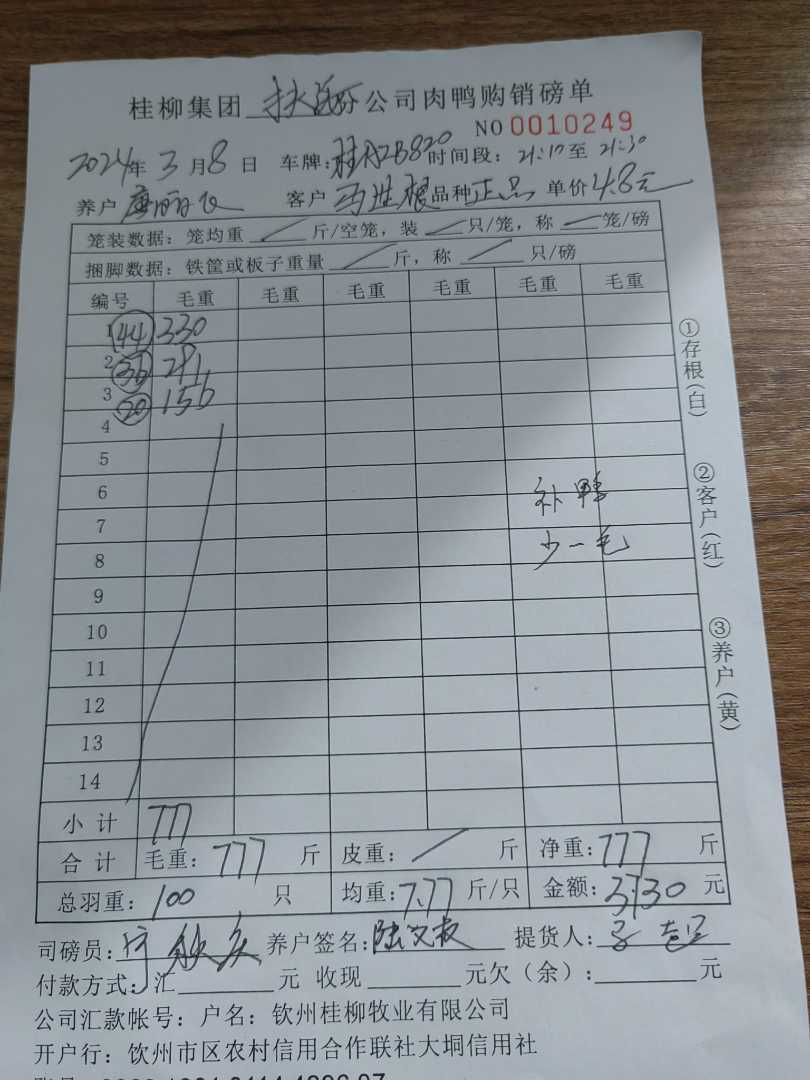 桂柳集团 扶 分公司肉鸭购销磅单
NO 0010249
2024年 3月 8日 车牌:桂A2B820 时间段: 21:10至 21:30
养户 客户 品种 正品 单价 4.8元
笼装数据: 笼均重 / 斤/空笼, 装 / 只/笼, 称 / 笼/磅
捆脚数据: 铁筐或板子重量 / 斤, 称 / 只/磅
编号 毛重 毛重 毛重 毛重 毛重 毛重
1 (44) 330
2 (36) 291
3 (20) 156
4
5
6 补鸭
7
8 少一毛
9
10
11
12
13
14
小计 777
合计 毛重: 777 斤 皮重: / 斤 净重: 777 斤
总羽重: 100 只 均重: 7.77 斤/只 金额: 3730 元
司磅员: 养户签名: 陆 提货人:
付款方式: 汇 元 收现 元欠(余): 元
公司汇款帐号: 户名: 钦州桂柳牧业有限公司
开户行: 钦州市区农村信用合作联社大垌信用社
①存根(白)
②客户(红)
③养户(黄)